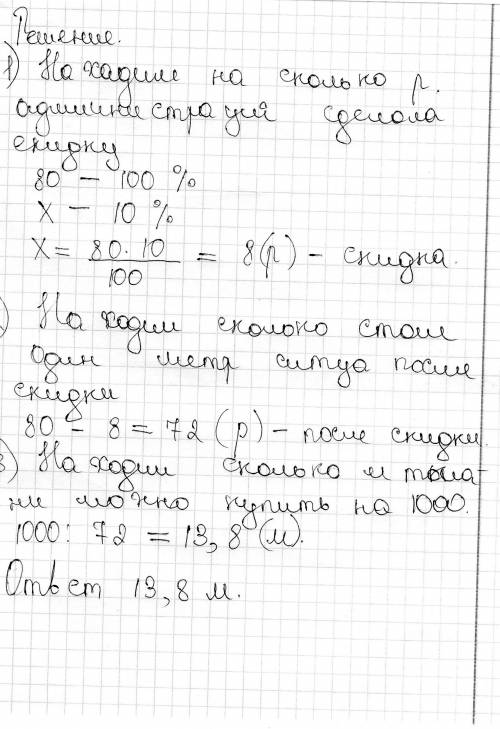 Решение.
1) На ходим на сколько р.
админи страция сделола
скидку
80 – 100 %
X – 10 %
X = 80 · 10 / 100 = 8 (р) – скидка.
) На ходим сколоко стоит
один метр ситца после
скидки
80 – 8 = 72 (р) – после скидки.
3) На ходим сколько м ткa-
ни можно купить на 1000.
1000 : 72 = 13,8 (м).
Ответ 13,8 м.